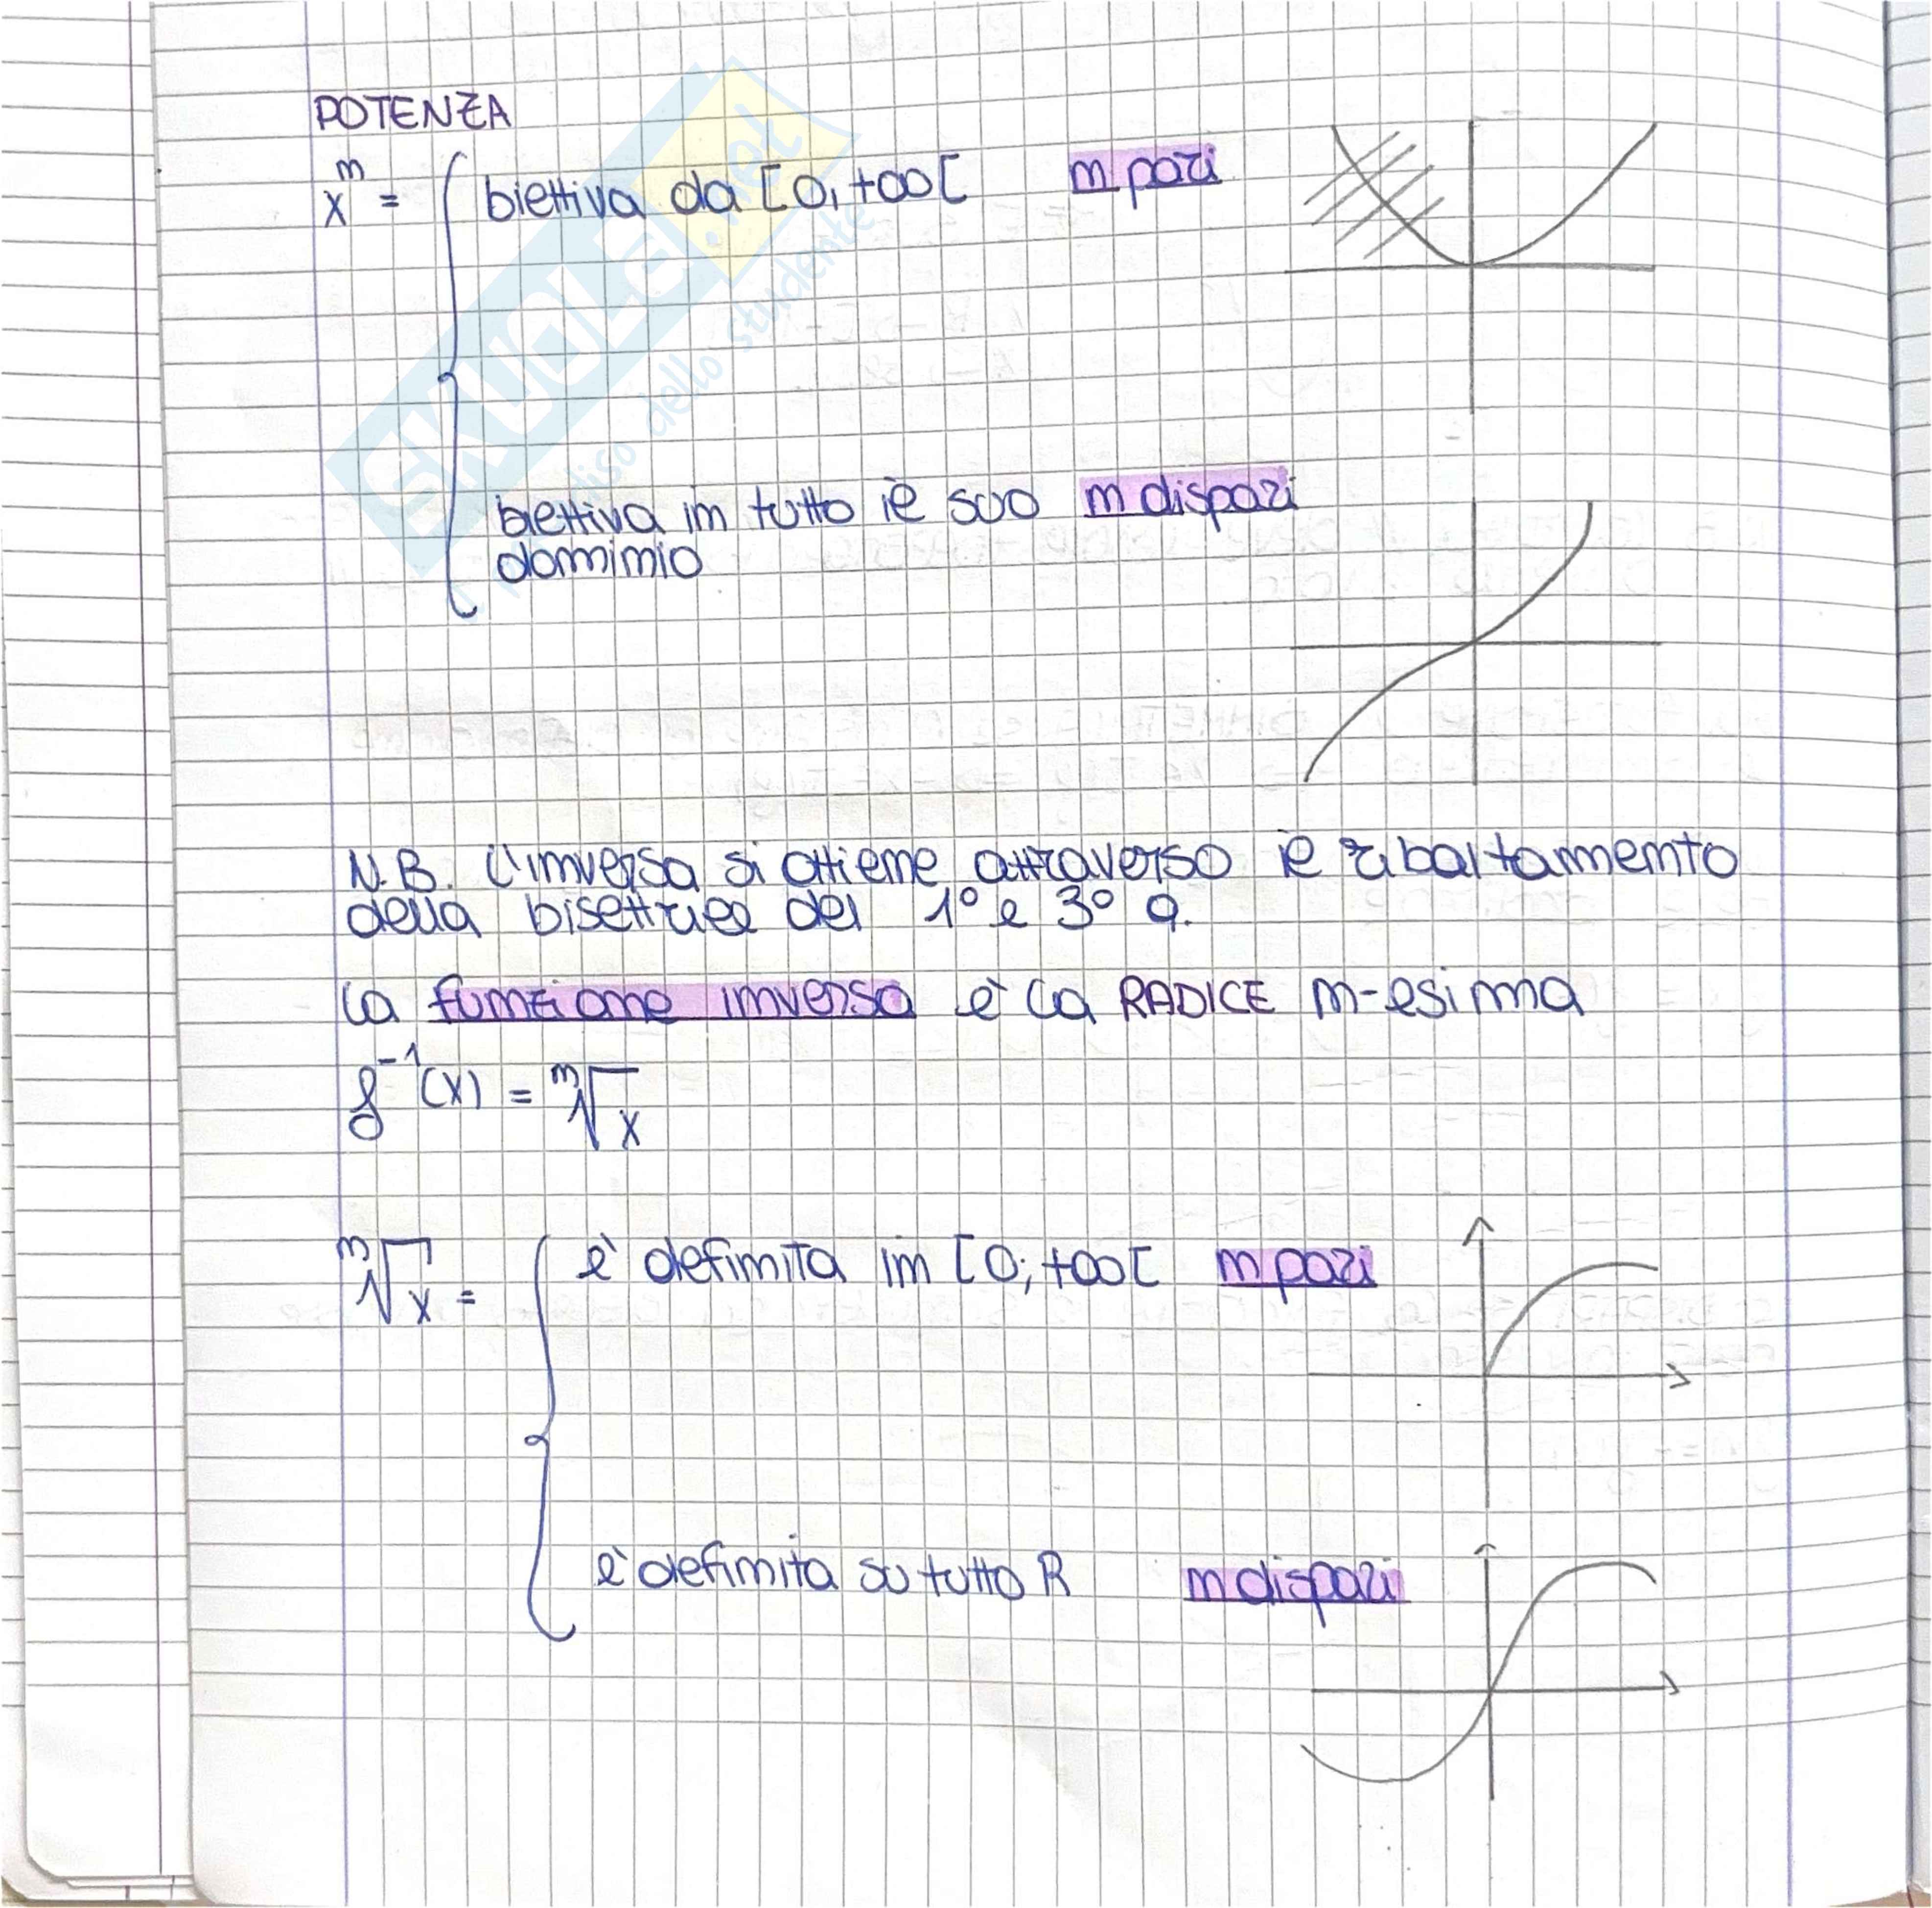 POTENZA
xⁿ = { biettiva da [0,+∞[ n pari
biettiva in tutto il suo n dispari
dominio
N.B. L'inversa si ottiene attraverso il ribaltamento
della bisettrice del 1° e 3° Q.
La funzione inversa è la RADICE n-esima
f⁻¹(x) = ⁿ√x
ⁿ√x = { è definita in [0;+∞[ n pari
è definita su tutto R n dispari
SKUOLA.net
dello studente